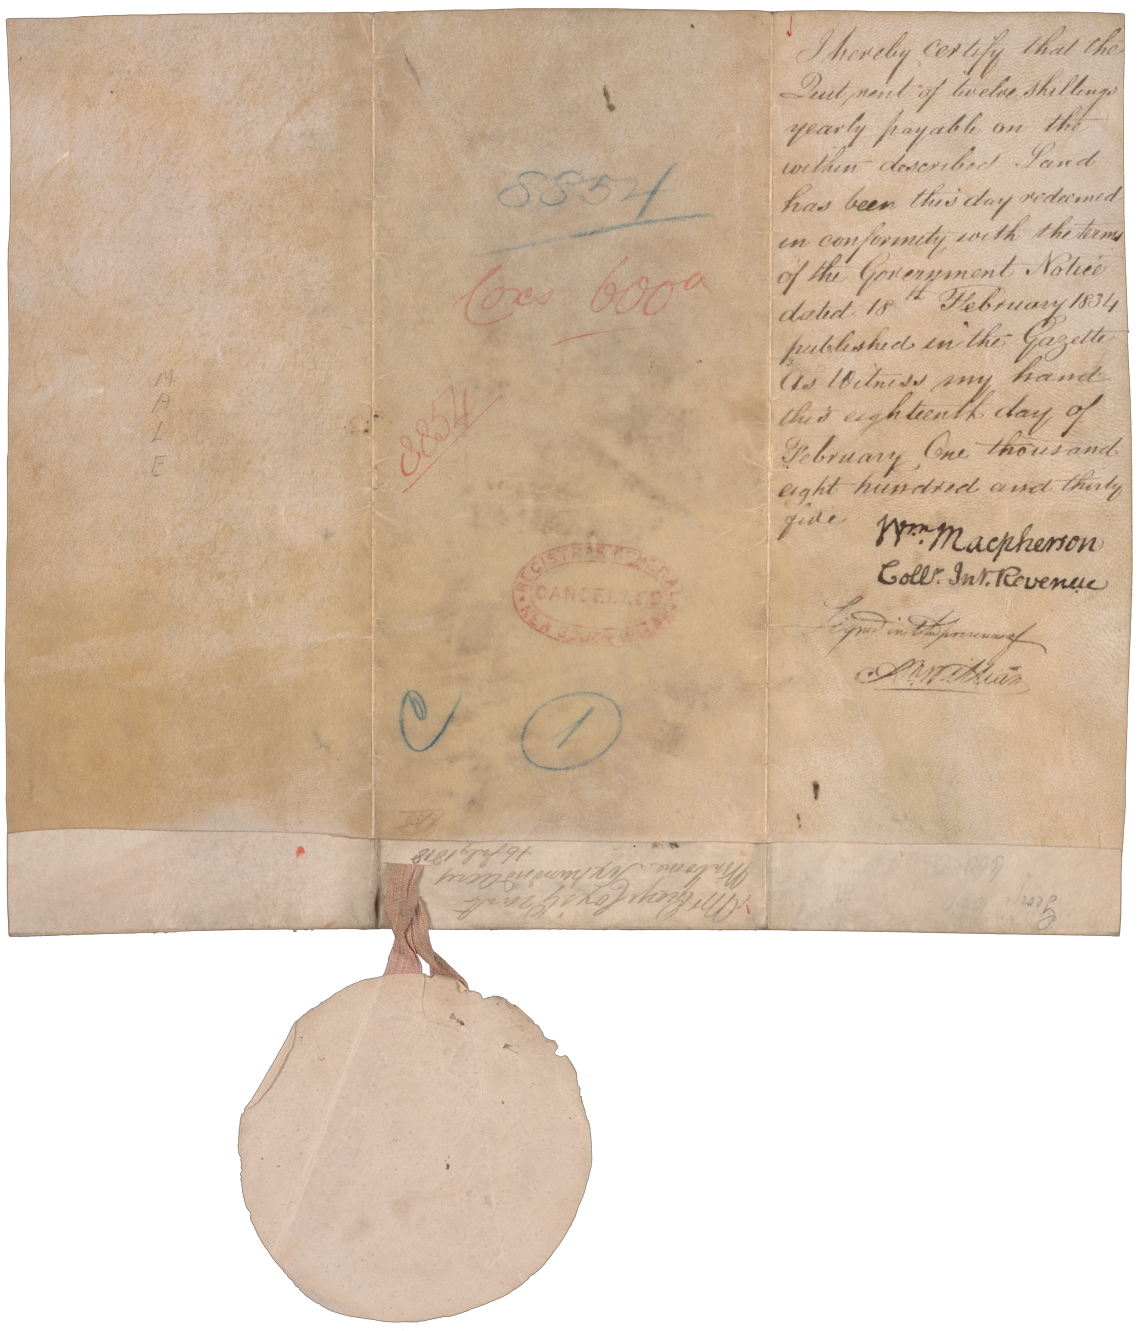 M
A
L
E
8854
Coxs 600a
8854
REGISTRAR GENERAL
CANCELLED
NEW SOUTH WALES
C
1
I hereby certify that the
Quit rent of twelve shillings
yearly payable on the
within described Land
has been this day redeemed
in conformity with the terms
of the Government Notice
dated 18th February 1834
published in the Gazette
As Witness my hand
this eighteenth day of
February One thousand
eight hundred and thirty
five
Wm. Macpherson
Collr. Int. Revenue
Signed in the presence of
Mr Geo. Cox's Grant
600
George Cox